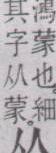 鴻蒙也細
其字从蒙从